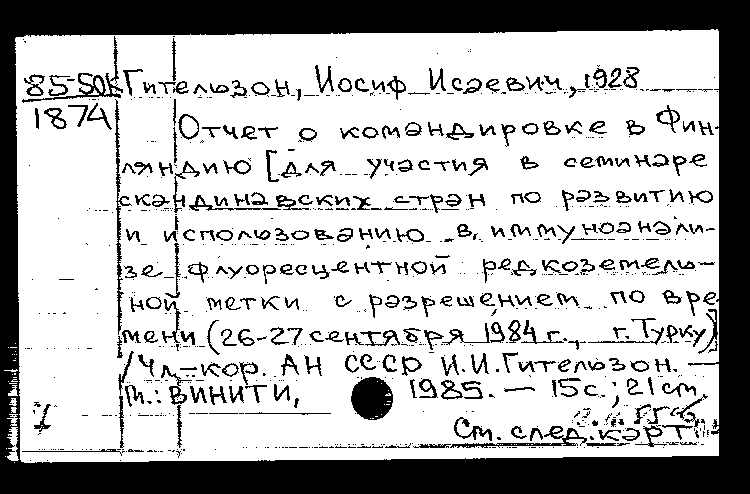 85-50К Гительзон, Иосиф Исаевич, 1928
1874
Отчет о командировке в Фин-
ляндию [для участия в семинаре
скандинавских стран по развитию
и использованию в иммуноанали-
зе флуоресцентной редкоземель-
ной метки с разрешением по вре
мени (26-27 сентября 1984 г., г. Турку)]
/Чл-кор. АН СССР И.И.Гительзон. —
М.: ВИНИТИ, 1985. — 15 с.; 21 см
1
См. след. карт